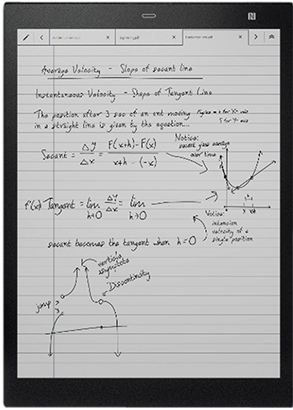 Average Velocity - Slope of secant line
Instantaneous Velocity - Slope of Tangent Line
The position after 3 sec of an ant moving
in a straight line is given by the equation...
Notice:
secant goes
over time
Secant = Δy/Δx = F(x+h)-F(x)/x+h-(-x)
f'(x) Tangent = lim h→0 Δy/Δx = lim h→0
Notice:
velocity of a
single position
secant becomes the tangent when h=0
vertical
asymptote
Discontinuity
jump